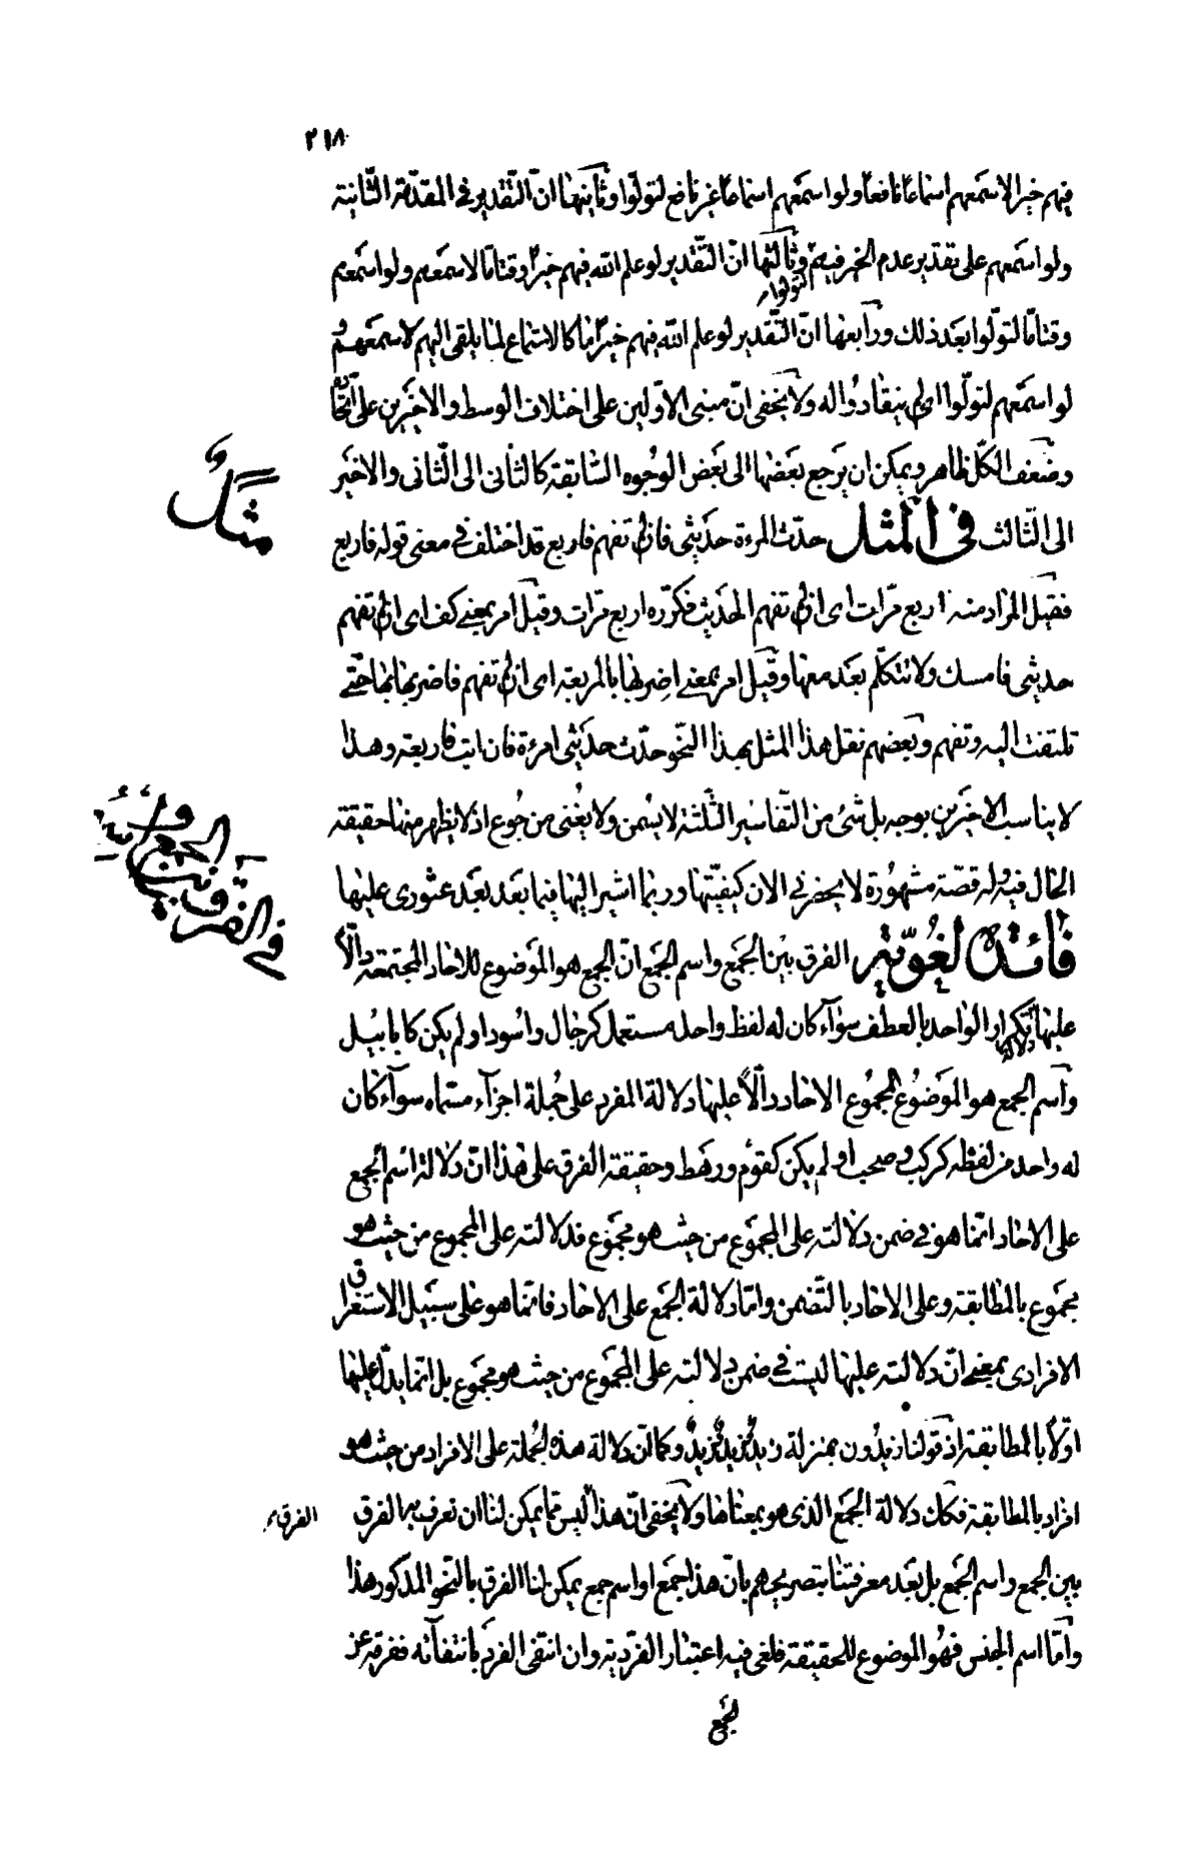 ٢١٨
فيهم خيرا لاسمعهم اسماعا نافعا ولو اسمعهم اسماعا غير نافع لتولّوا وثانيها انّ التّقدير في المقدّمة الثّانية
ولو اسمعهم على تقدير عدم الخير فيهم وثالثها انّ التّقدير لو علم الله فيهم خيرا وقتا ما لاسمعهم ولو اسمعهم
لتولوا
وقتا مّا لتولّوا بعد ذلك ورابعها انّ التّقدير لو علم الله فيهم خيرا ما كالاستماع لما يلقى اليهم لاسمعهم و
لو اسمعهم لتولّوا اى لم ينقادوا له ولا يخفى انّ مبنى الاوّلين على اختلاف الوسط والاخيرين على اتّحاده
وضعف الكلّ ظاهر ويمكن ان يرجع بعضها الى بعض الوجوه السّابقة كالثانى الى الثّانى والاخير
مثل
الى الثّالث في المثل حدّث المرءة حديثى فان لم تفهم فاربع قد اختلف في معنى قوله فاربع
فقيل المراد منه اربع مرّات اى ان لم تفهم الحديث فكرّره اربع مرات وقيل امر بمعنى كف اى ان لم تفهم
حديثى فامسك ولا تتكلّم بعد معها وقيل امر بمعنى اضربها بالمربعة اى ان لم تفهم فاضربها بها حتّى
تلتفت اليه وتفهم وبعضهم نقل هذا المثل بهذا النّحو حدّث حديثى امرءة فان ابت فاربعة وهذا
لا يناسب الاخيرين بوجه بل شئ من التّفاسير الثّلثة لا يسمن ولا يغنى من جوع اذ لا يظهر منها حقيقة
الحال فيه وله قصّة مشهورة لا يحضرنى الان كيفيّتها وربما اشير اليها فيما بعد بعد عثورى عليها
في الفرق بين الجمع واسمه
فائدة لغويّة الفرق بين الجمع واسم الجمع انّ الجمع هو الموضوع للاحاد المجتمعة دالّا
عليها تكرار الواحد بالعطف سوآء كان له لفظ واحد مستعمل كرجال واسود او لم يكن كابابيل
دلالة
واسم الجمع هو الموضوع لمجموع الاحاد دالّا عليها دلالة المفرد على جملة اجزآء مسمّاه سوآء كان
له واحد من لفظه كركب وصحب او لم يكن كقوم ورهط وحقيقة الفرق على هذا انّ دلالة اسم الجمع
على الاحاد انّما هو في ضمن دلالته على المجموع من حيث هو مجموع فدلالته على المجموع من حيث هو
مجموع بالمطابقة وعلى الاحاد بالتّضمن وامّا دلالة الجمع على الاحاد فانّما هو على سبيل الاستغراق
الافرادى بمعنى انّ دلالته عليها ليست في ضمن دلالته على المجموع من حيث هو مجموع بل انّما يدلّ عليها
اوّلا بالمطابقة اذ قولنا زيدون بمنزلة زيد وزيد وزيد وكما انّ دلالة هذه الجملة على الافراد من حيث هو
افراد بالمطابقة فكك دلالة الجمع الذى هو بمعناها ولا يخفى انّ هذا ليس ممّا يمكن لنا ان نعرف به الفرق
بين الجمع واسم الجمع بل بعد معرفتنا بتصريحهم بانّ هذا جمع او اسم جمع يمكن لنا الفرق بالنّحو المذكور هذا
وامّا اسم الجنس فهو الموضوع للحقيقة فلغى فيه اعتبار الفرديّة وان انتفى الفرد بانتفآئه ففرقه عن
الجمع